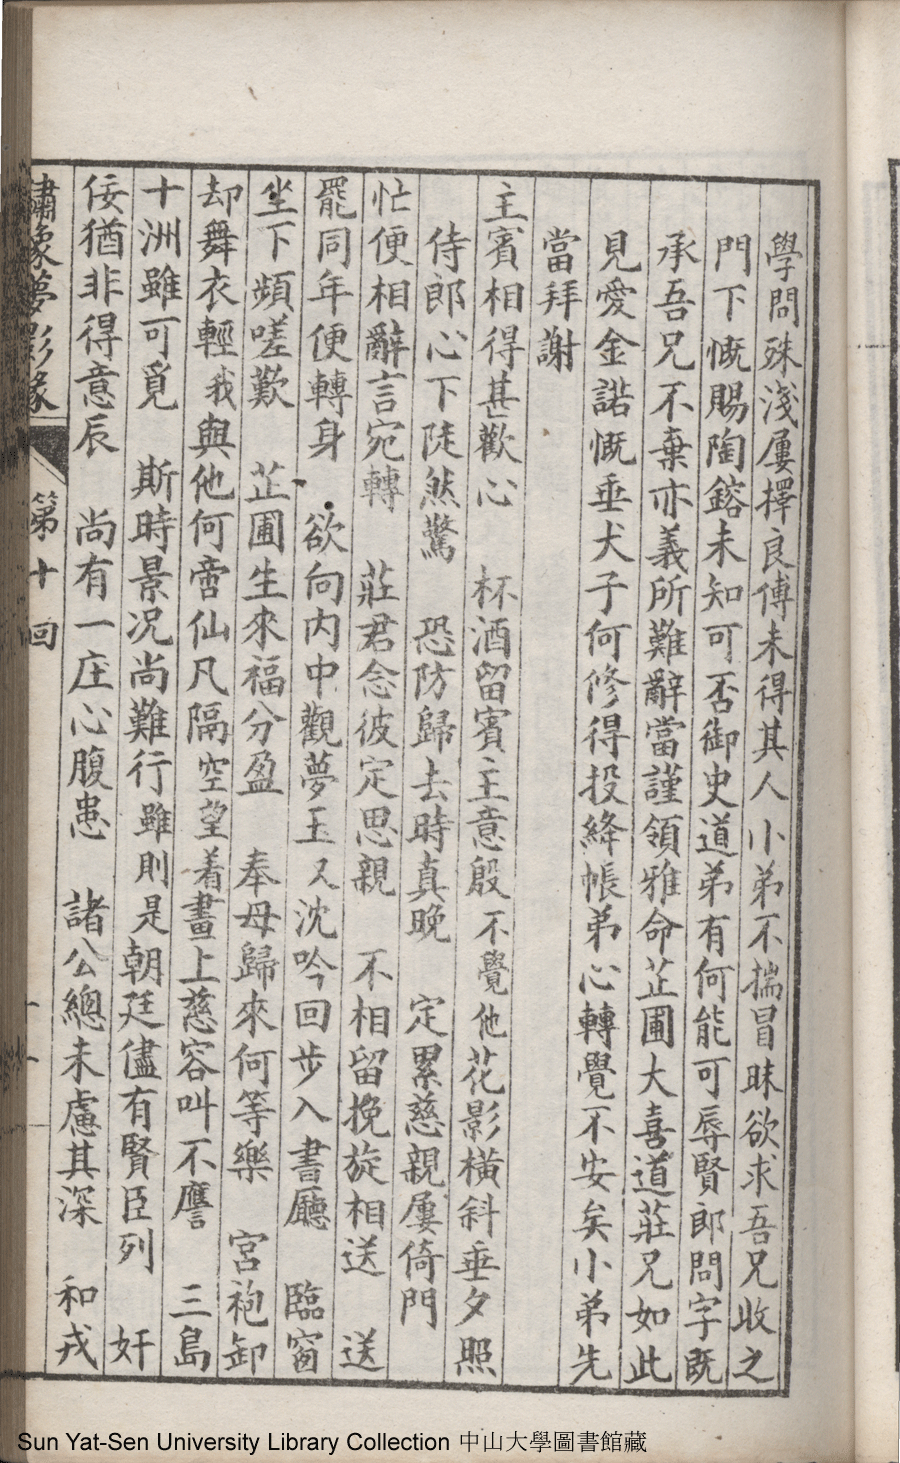 學問殊淺屢擇良傅未得其人小弟不揣冒昧欲求吾兄收之
門下慨賜陶鎔未知可否御史道弟有何能可辱賢郎問字既
承吾兄不棄亦義所難辭當謹領雅命芷圃大喜道莊兄如此
見愛金諾慨垂犬子何修得投絳帳弟心轉覺不安矣小弟先
當拜謝
主賓相得甚歡心 杯酒留賓主意殷 不覺他花影橫斜垂夕照
侍郎心下陡然驚 恐防歸去時真晚 定累慈親屢倚門
忙便相辭言宛轉 莊君念彼定思親 不相留挽旋相送 送
罷同年便轉身 欲向内中觀夢玉 又沈吟回步入書廳 臨窗
坐下頻嗟歎 芷圃生來福分盈 奉母歸來何等樂 宮袍卸
却舞衣輕 我與他何啻仙凡隔 空望着畫上慈容叫不譍 三島
十洲雖可覓 斯時景况尚難行 雖則是朝廷儘有賢臣列 奸
佞猶非得意辰 尚有一庄心腹患 諸公總未慮其深 和戎
繡像夢影緣 第十回
Sun Yat-Sen University Library Collection 中山大學圖書館藏